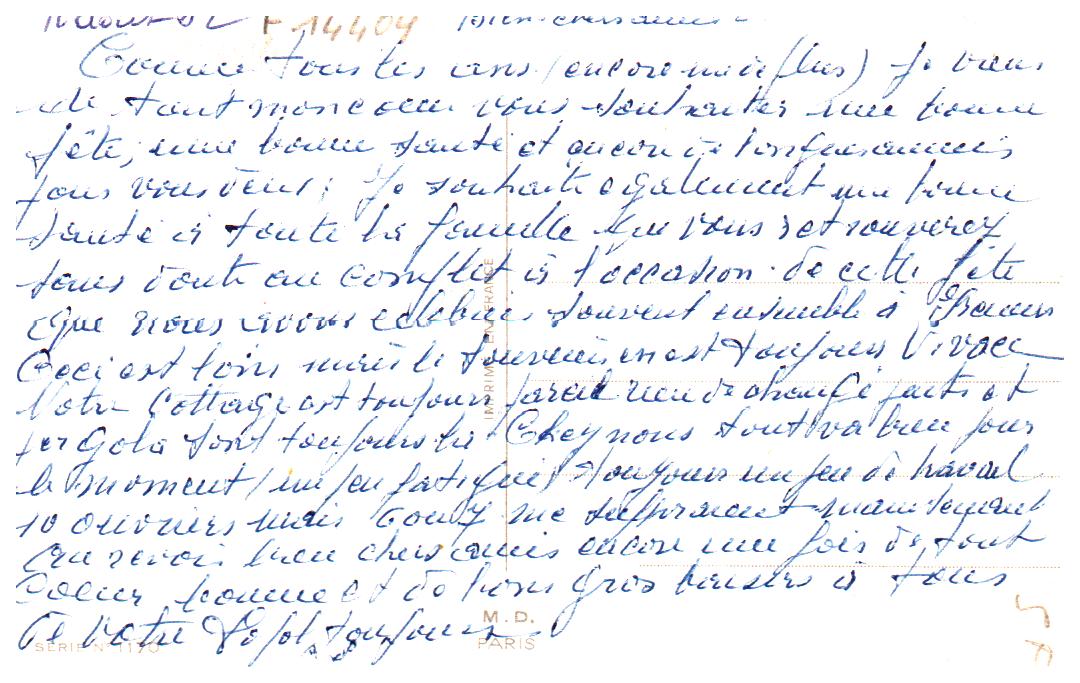 F 14404 Bien chers amis
Comme tous les ans (encore une de plus) je viens
de tout mon coeur vous souhaiter une bonne
fête, une bonne santé et encore de longues années
pour vous deux; je souhaite également une bonne
santé à toute la famille que vous retrouverez
sans doute au complet à l'occasion de cette fête
que nous avons célébrée souvent ensemble à
Ceci est loin mais le souvenir en est toujours vivace
Votre Cottage est toujours pareil rien de changé puits et
pergola sont toujours là Chez nous tout va bien pour
le moment (un peu fatigué) toujours un peu de travail
10 ouvriers mais me maintenant
Au revoir bien chers amis encore une fois de tout
coeur bonne et de bons gros baisers à tous
de votre toujours
IMPRIMÉ EN FRANCE
M. D.
PARIS
SÉRIE N° 1170